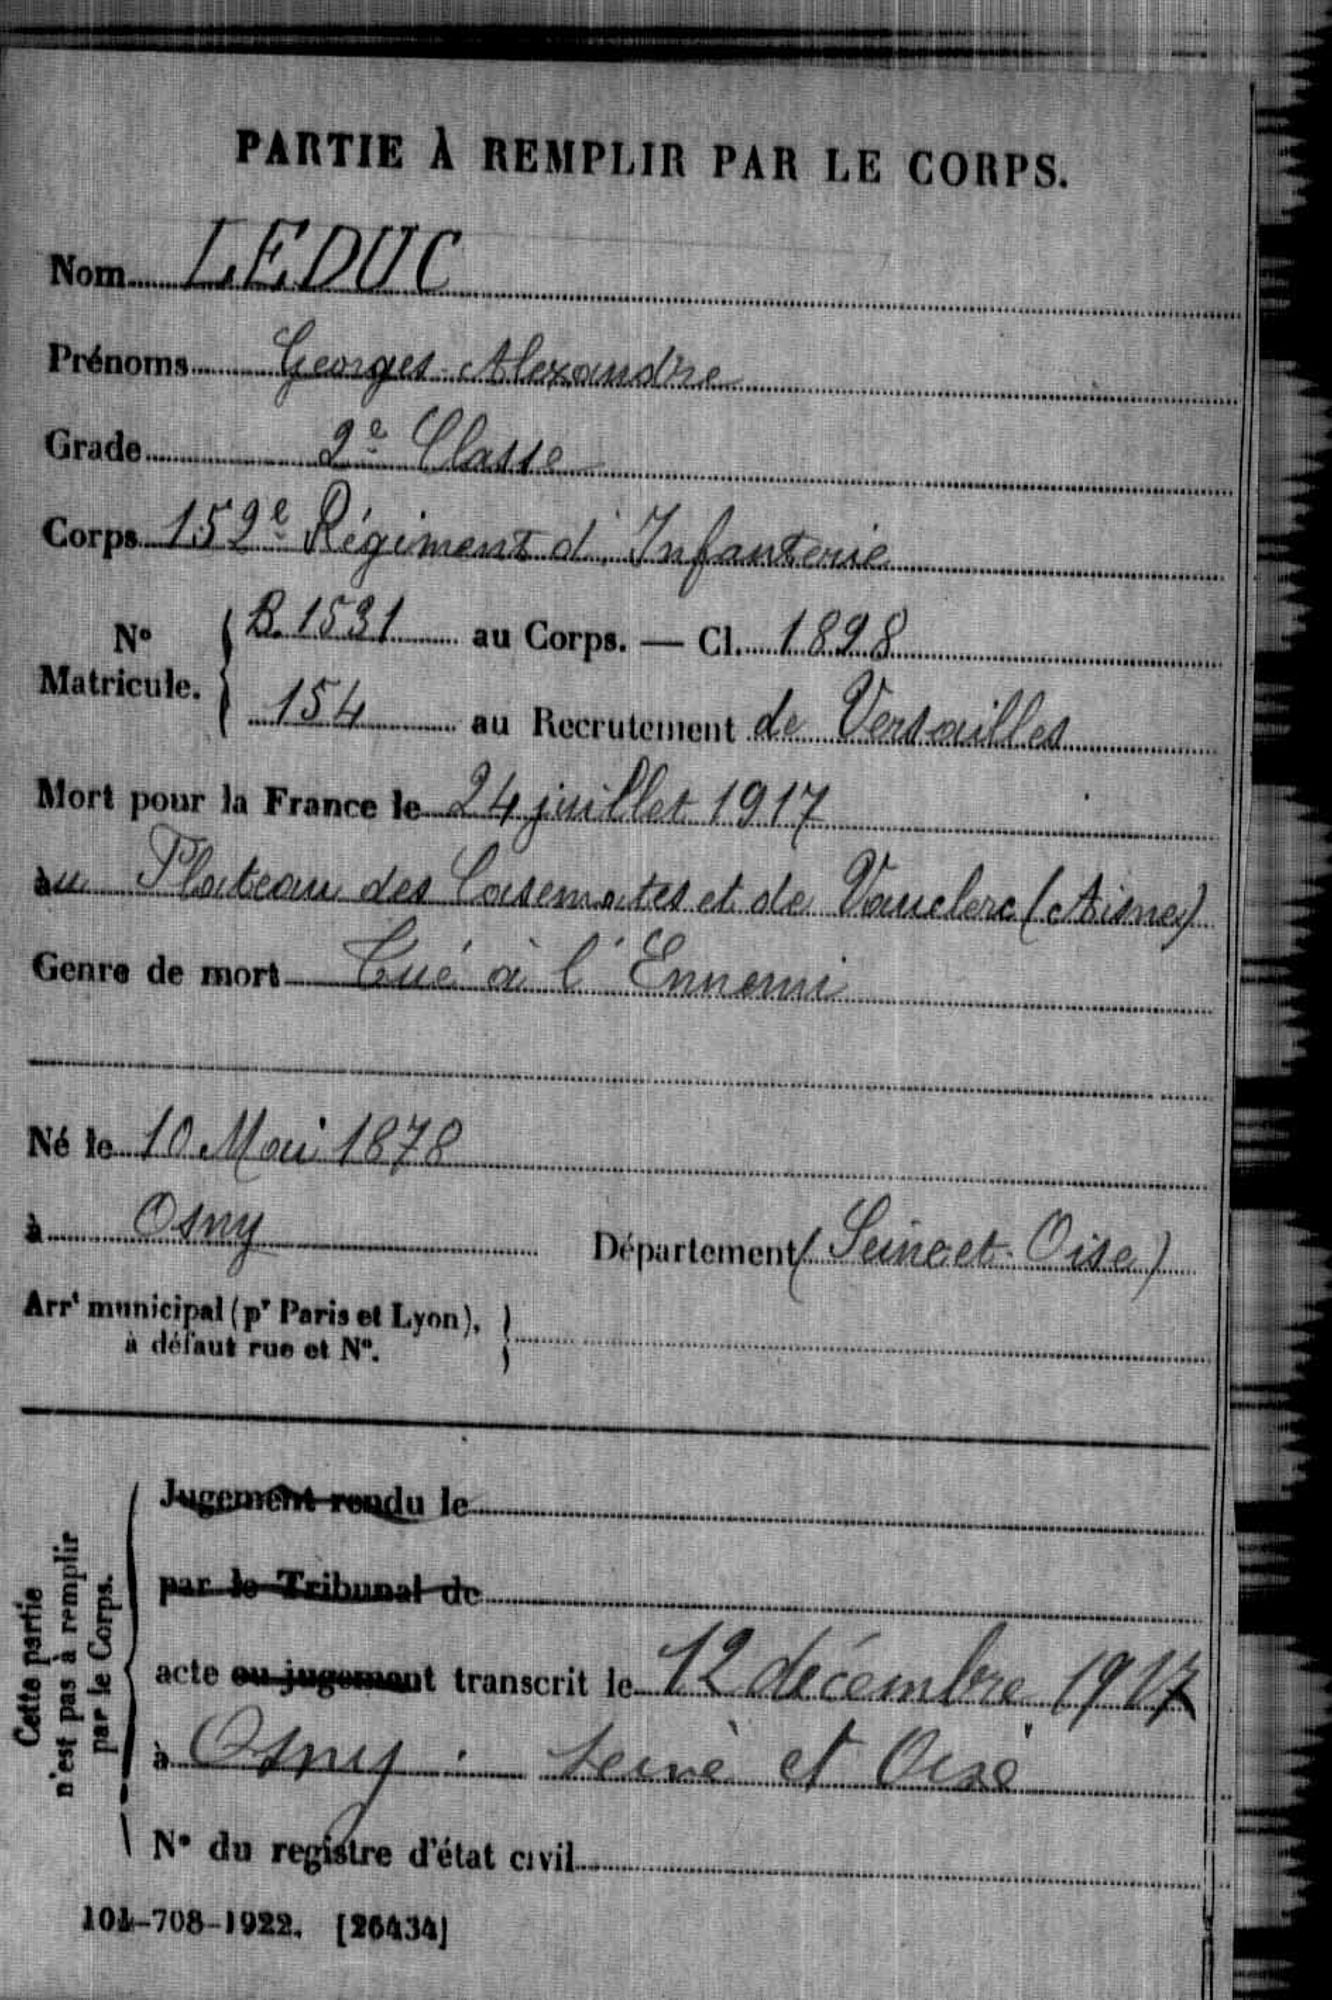 PARTIE À REMPLIR PAR LE CORPS.
Nom LEDUC
Prénoms Georges Alexandre
Grade 2e Classe
Corps 152e Régiment d'Infanterie
N° Matricule. { B. 1531 au Corps. — Cl. 1898
154 au Recrutement de Versailles
Mort pour la France le 24 juillet 1917
au Plateau des Casemates et de Vauclerc (Aisne)
Genre de mort Tué à l'Ennemi
Né le 10 Mai 1878
à Osny Département (Seine et Oise)
Arrt municipal (pr Paris et Lyon),
à défaut rue et N°.
Cette partie
n'est pas à remplir
par le Corps.
Jugement rendu le
par le Tribunal de
acte ou jugement transcrit le 12 décembre 1917
à Osny : Seine et Oise
N° du registre d'état civil
101-708-1922. [26434]